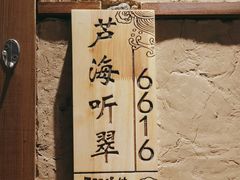 芦海听翠
6616